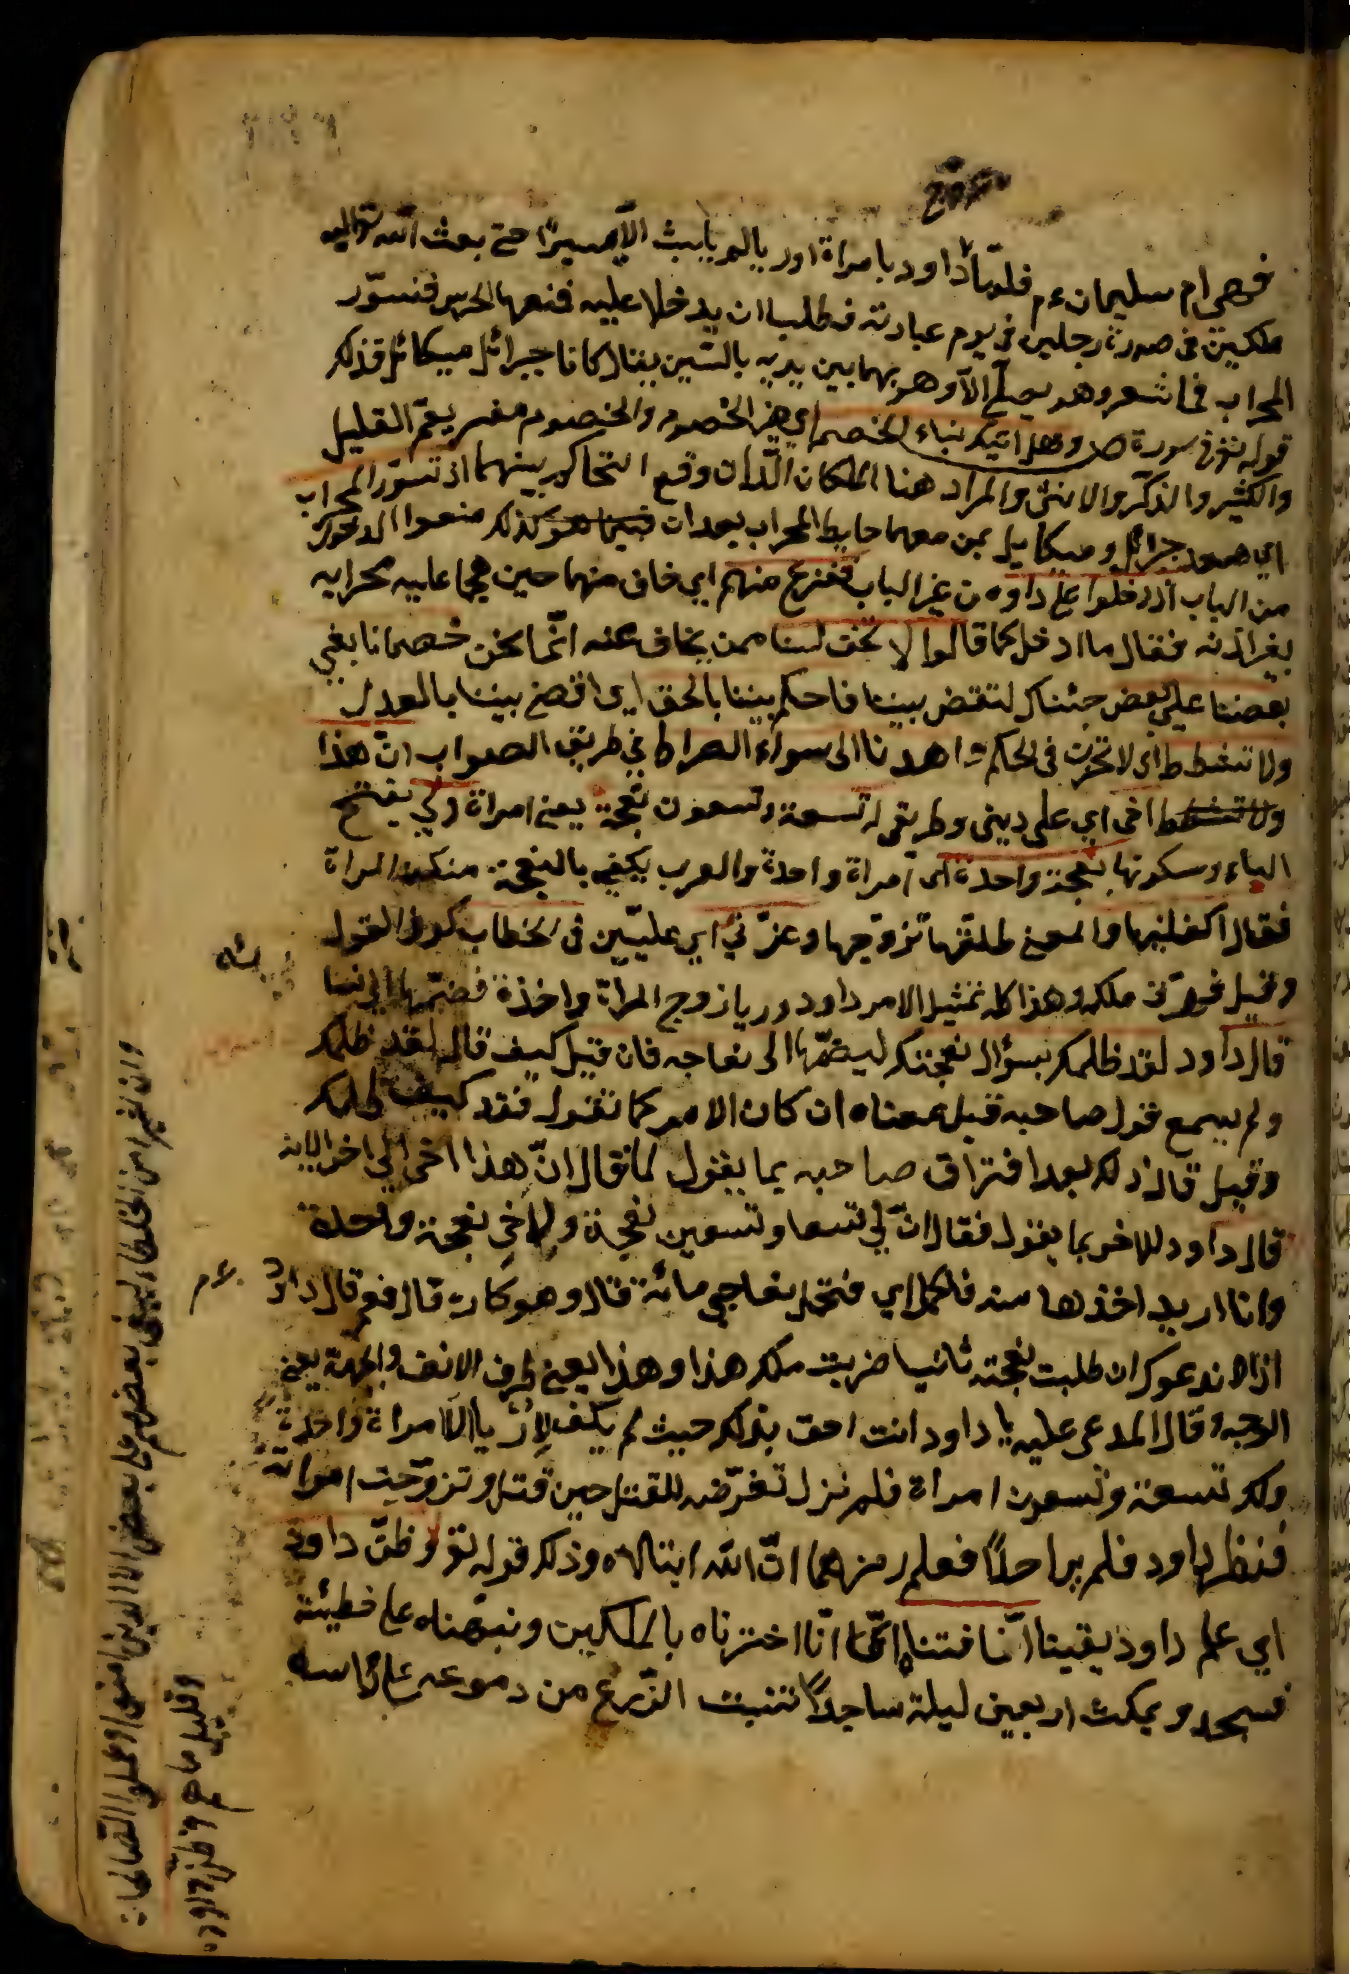 تزوج
فهي ام سليمان ءم فلما داود بامراة اوريا لم يلبث الا يسيرا حتى بعث الله تعالى اليه
ملكين في صورة رجلين في يوم عبادته فطلبا ان يدخلا عليه فمنعهما الحرس فتسور
المحراب فما شعر وهو يصلي الا وهو بهما بين يديه جالسين يقال كانا جبرائل ميكائل فذلك
قوله تع في سورة ص وهل اتيك نباء الخصم اي هذا الخصوم والخصوم مفسر يعم القليل
والكثير والذكر والانثى والمراد هنا الملكان اللذان وقع التحاكم بينهما اذ تسور المحراب
اي صعد جبرائل وميكايل بمن معهما حايط المحراب بعد ان كذلك منعوا الدخول
من الباب اذ دخلوا على داود من غير الباب ففزع منهم اي خاف منهما حين هجما عليه محرابه
بغير اذنه فقال ما ادخلكما قالوا لا تخف لسنا ممن يخاف عنه انما نحن خصمان بغى
بعضنا على بعض جئناك لتقض بيننا فاحكم بيننا بالحق اي اقض بيننا بالعدل
ولا تشطط اي لا تجرن في الحكم واهدنا الى سواء الصراط في طريق الصواب ان هذا
اخي اي على ديني وطريقي له تسعة وتسعون نعجة يعني امراة ولي بفتح
الياء وسكونها نعجة واحدة اي امراة واحدة والعرب يكني بالنعجة منكن المراة
فقال اكفلنيها والمعنى طلقها تزوجها وعزني اي علبين في الخطاب كون القول
وقيل في ملكه وهذا كله تمثيل الامر داود وريا زوج المراة واخذة فضمها الى نسا
ئه
قال داود لقد ظلمك بسؤال نعجتك ليضمها الى نعاجه فان قيل كيف قال لقد ظلمك
ولم يسمع قول صاحبه قيل معناه ان كان الامر كما تقول فقد كيف ظلمك
وقيل قال ذلك بعد افتراق صاحبه بما يقول لما قال ان هذا اخي الى اخر الاية
قال داود للاخر بما يقول فقال ان لي تسعا وتسعين نعجة ولاخي نعجة واحدة
وانا اريد اخذها منه فاكمل اي فتكمل نعاجي مائة قال وهو كاره قال نعم قال داود
ءم
اذا لا ندعوك ان طلبت نعجته ثانيا ضربت منك هذا وهذا يعني طرف الانف والجبهة يعني
الوجه وقال المدعى عليه يا داود انت احق بذلك حيث لم يكن لاريا الا امراة واحدة
ولك تسعة وتسعون امراة فلم نزل تعرضه للقتل حين قتل وتزوجت امراته
فنظر داود فلم ير احدا فعلم رمزهما ان الله ابتلاه وذلك قوله تع وظن داود
اي علم داود يقينا انا فتناه انما انا اختبرناه بالملكين ونبهناه على خطيئته
فسجد و يمكث اربعين ليلة ساجدا تنبت الزرع من دموعه على راسه
وان كثيرا من الخلطاء ليبغي بعضهم على بعض الا الذين امنوا وعملوا الصالحات
وقليل ما هم وظن داود